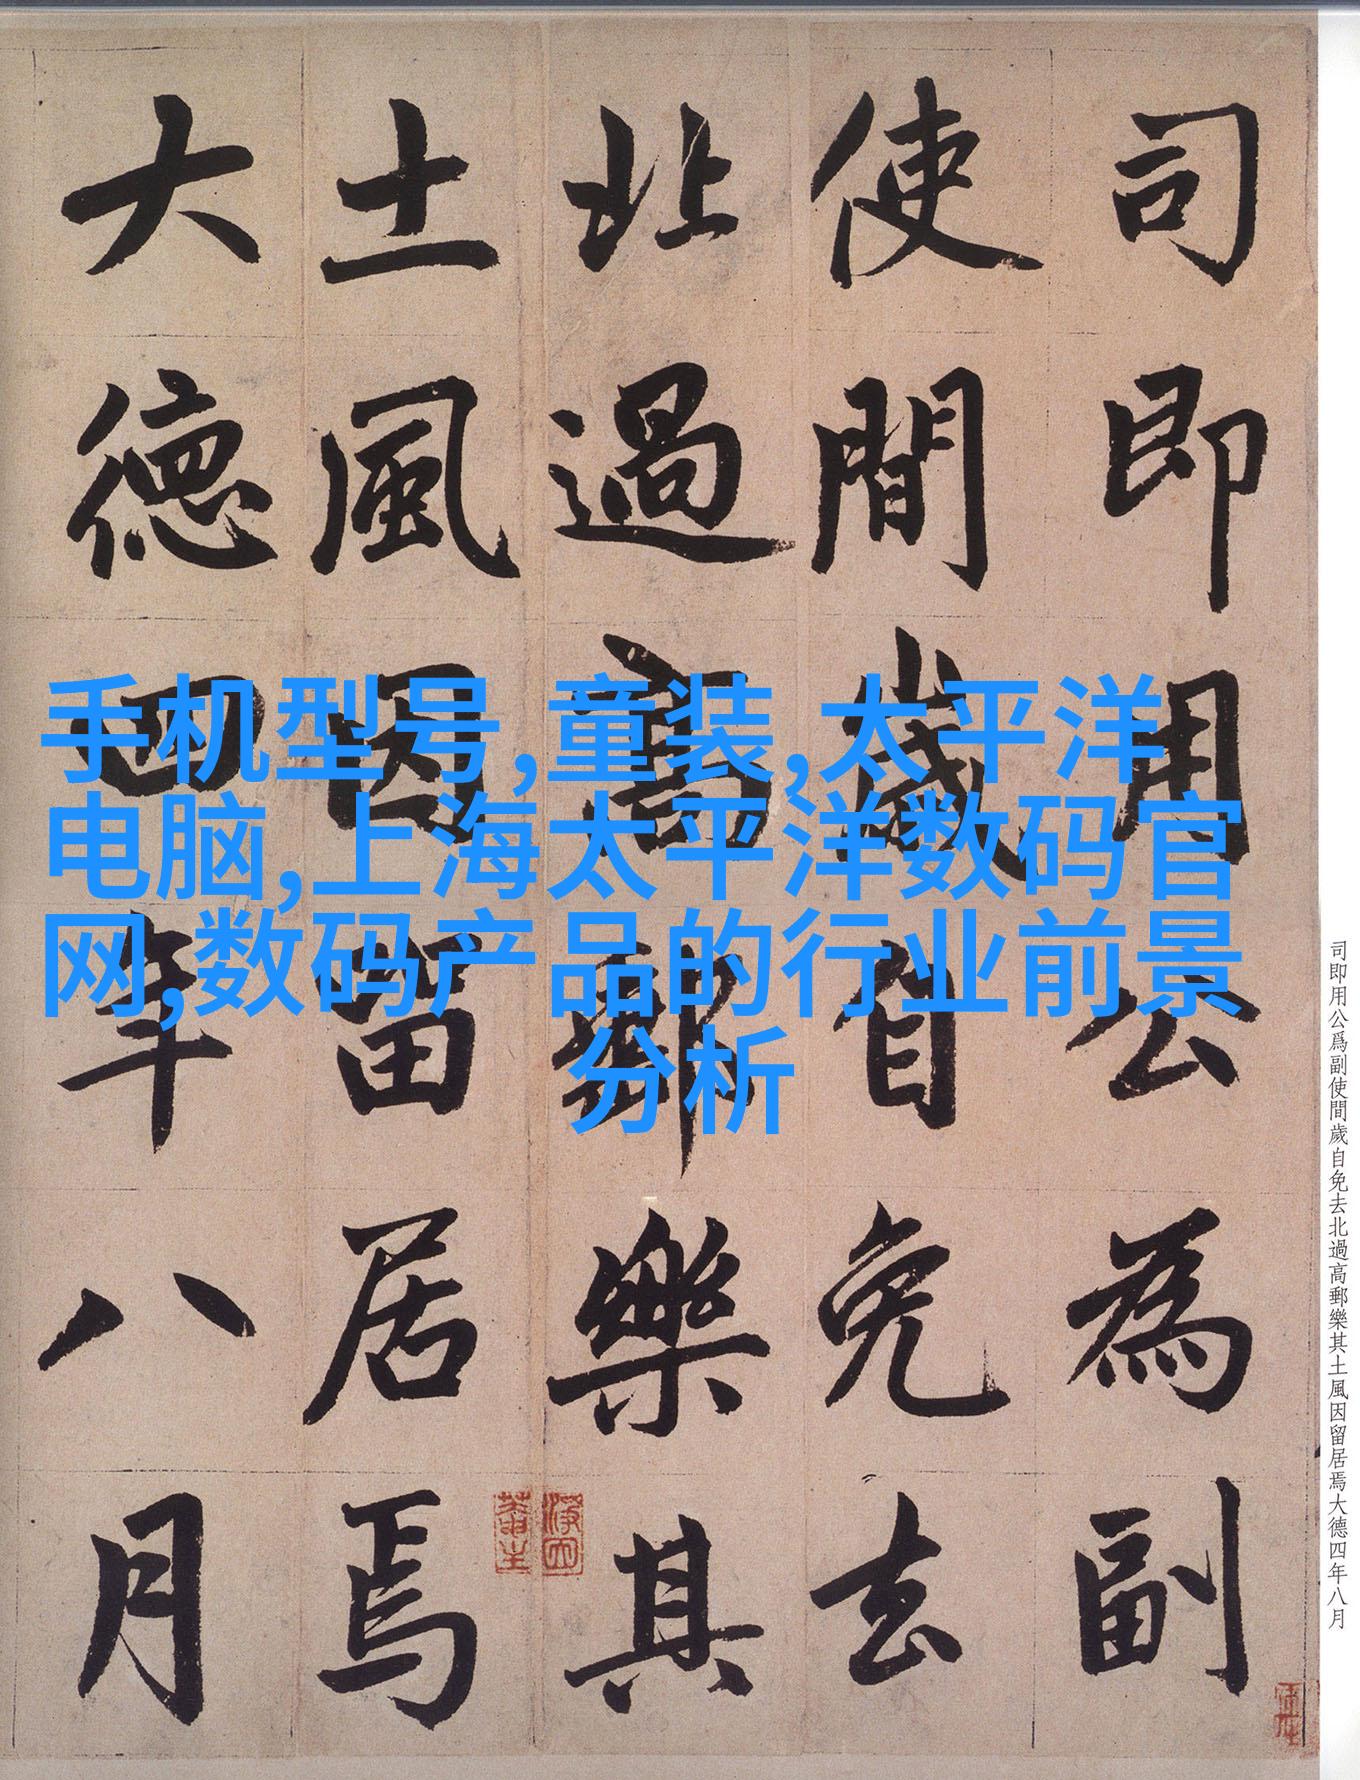 司即用公為副
使間歲自免去
北過高郵樂其
土風因留居焉
大德四年八月
手机型号,童装,太平洋
电脑,上海太平洋数码官
网,数码产品的行业前景
分析
司即用公爲副使間歲自免去北過高郵樂其土風因留居焉大德四年八月